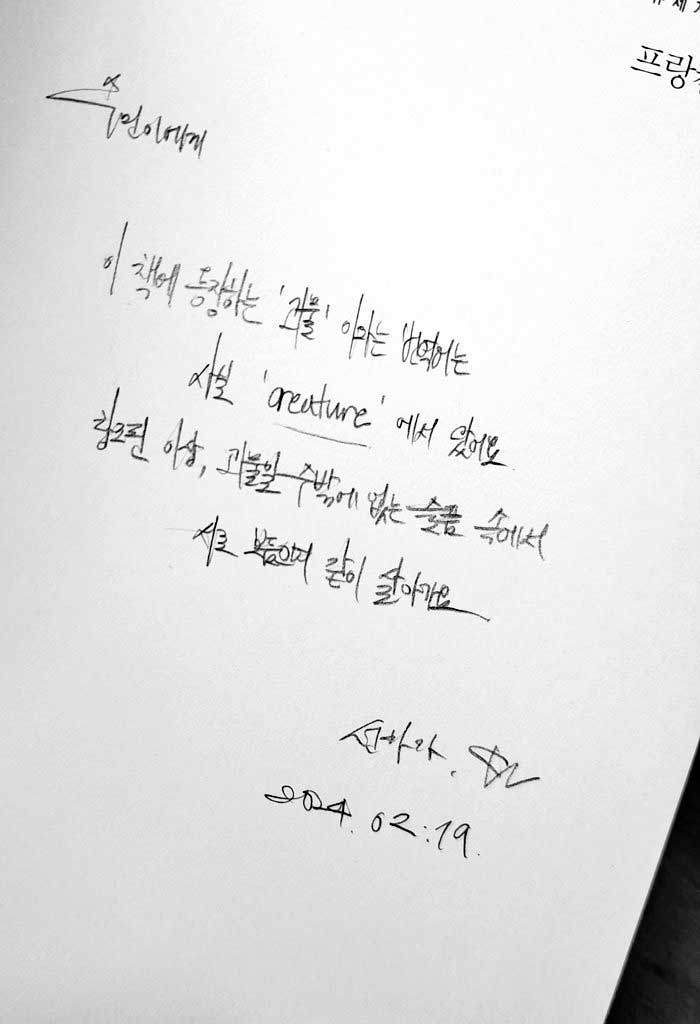 프랑
수민이에게
이 책에 등장하는 '괴물' 이라는 번역어는
사실 'creature' 에서 왔어요
창조된 이상, 괴물일 수밖에 없는 슬픔 속에서
서로 보듬으며 같이 살아가요
2024. 02:19.